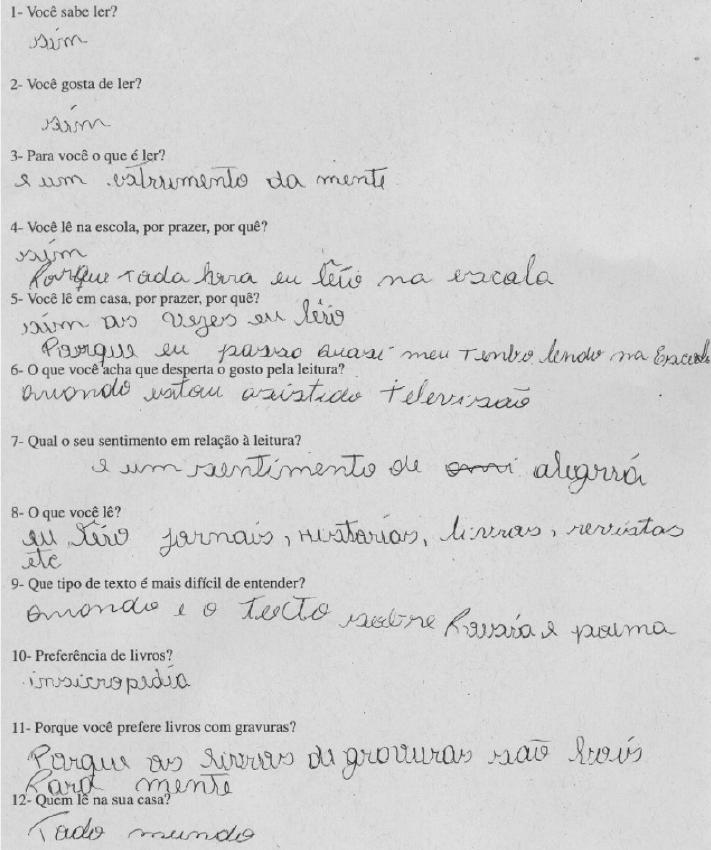 1- Você sabe ler?
sim
2- Você gosta de ler?
sim
3- Para você o que é ler?
e um estrumento da mente
4- Você lê na escola, por prazer, por quê?
sim
Porque toda hora eu lêio na escola
5- Você lê em casa, por prazer, por quê?
sim as vezes eu lêio
Porque eu passo quasi meu Tenbo lendo na Escola
6- O que você acha que desperta o gosto pela leitura?
quando estou asistido televisão
7- Qual o seu sentimento em relação à leitura?
e um sentimento de alegriá
8- O que você lê?
eu lêio jornais, histórias, livros, revistas
etc
9- Que tipo de texto é mais difícil de entender?
quando e o texto sobre Pousia e poema
10- Preferência de livros?
insicropedia
11- Porque você prefere livros com gravuras?
Porque os livros de gravuras são bois
Para mente
12- Quem lê na sua casa?
Todo mundo